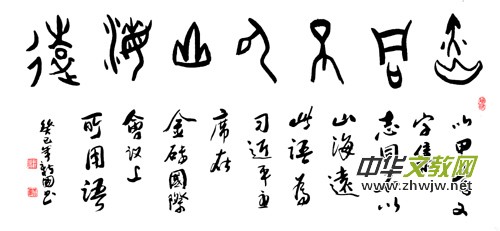 志同不以山海遠
以甲骨文
字集
志同不以
山海遠
此語為
习近平主
席在
金磚國際
會议上
所用語
癸巳年
中华文教网
www.zhwjw.net